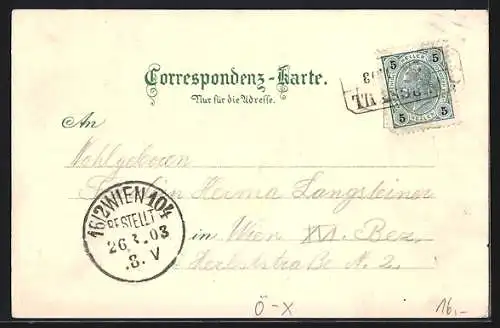 Correspondenz-Karte.
Nur für die Adresse.
5 HELLER 5
5 HELLER 5
An
Wohlgeboren
Fräulein Herma Langsteiner
in Wien XVI. Bez.
Herbststraße N. 2.
16/2 WIEN 104
BESTELLT
26.3.03
.8.V
Ö-X
16,-